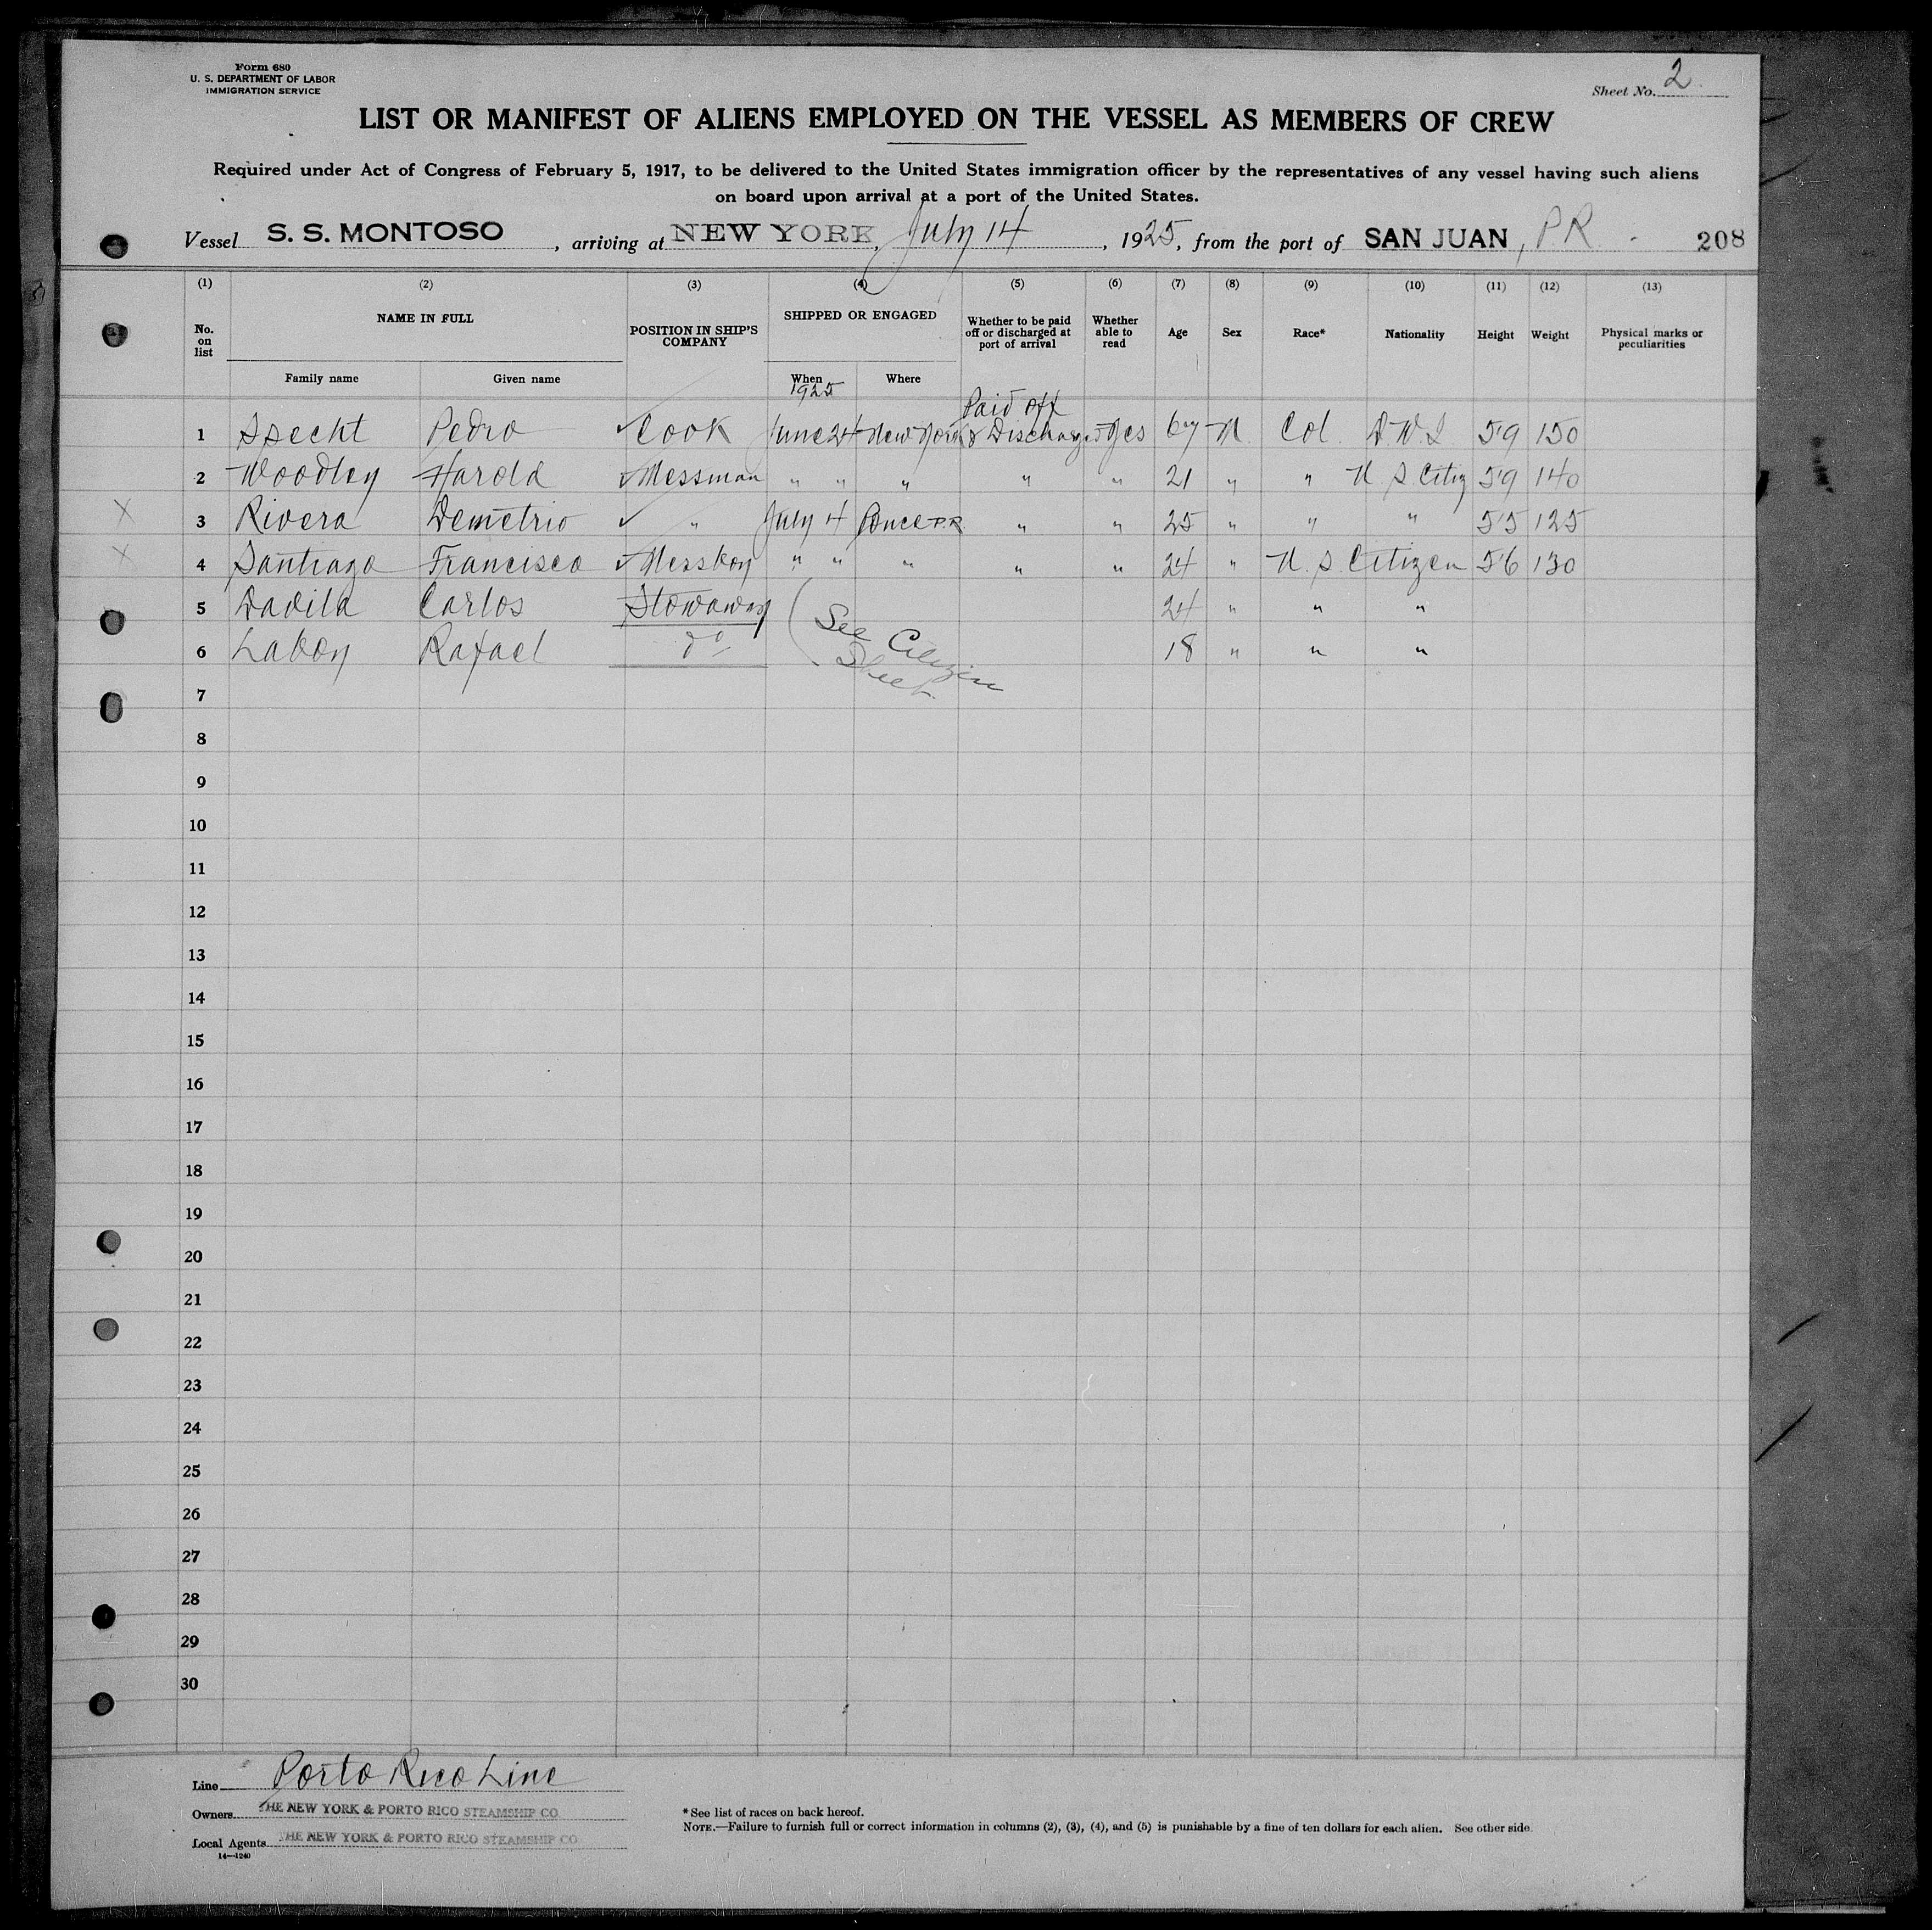 Form 680
U. S. DEPARTMENT OF LABOR
IMMIGRATION SERVICE
Sheet No. 2
LIST OR MANIFEST OF ALIENS EMPLOYED ON THE VESSEL AS MEMBERS OF CREW
Required under Act of Congress of February 5, 1917, to be delivered to the United States immigration officer by the representatives of any vessel having such aliens
on board upon arrival at a port of the United States.
Vessel S. S. MONTOSO, arriving at NEW YORK, July 14, 1925, from the port of SAN JUAN, P.R. 208
(1) (2) (3) (4) (5) (6) (7) (8) (9) (10) (11) (12) (13)
No. on list NAME IN FULL POSITION IN SHIP'S COMPANY SHIPPED OR ENGAGED Whether to be paid off or discharged at port of arrival Whether able to read Age Sex Race* Nationality Height Weight Physical marks or peculiarities
Family name Given name When Where
1925
Paid off
1 Specht Pedro Cook June 24 New York & Discharged Yes 67 M Col. D.W.I 5'9 150
2 Woodley Harold Messman " " " " " 21 " " U S Citiz 5'9 140
X 3 Rivera Demetrio " July 4 Ponce P.R. " " 25 " " " 5'5 125
X 4 Santiago Francisco Messboy " " " " " 24 " U. S. Citizen 5'6 130
5 Davila Carlos Stowaway 24 " " "
6 Laboy Rafael do 18 " " "
( See Citizen
Sheet.
7
8
9
10
11
12
13
14
15
16
17
18
19
20
21
22
23
24
25
26
27
28
29
30
Line Porto Rico Line
Owners THE NEW YORK & PORTO RICO STEAMSHIP CO.
Local Agents THE NEW YORK & PORTO RICO STEAMSHIP CO
14—1240
*See list of races on back hereof.
NOTE.—Failure to furnish full or correct information in columns (2), (3), (4), and (5) is punishable by a fine of ten dollars for each alien. See other side.